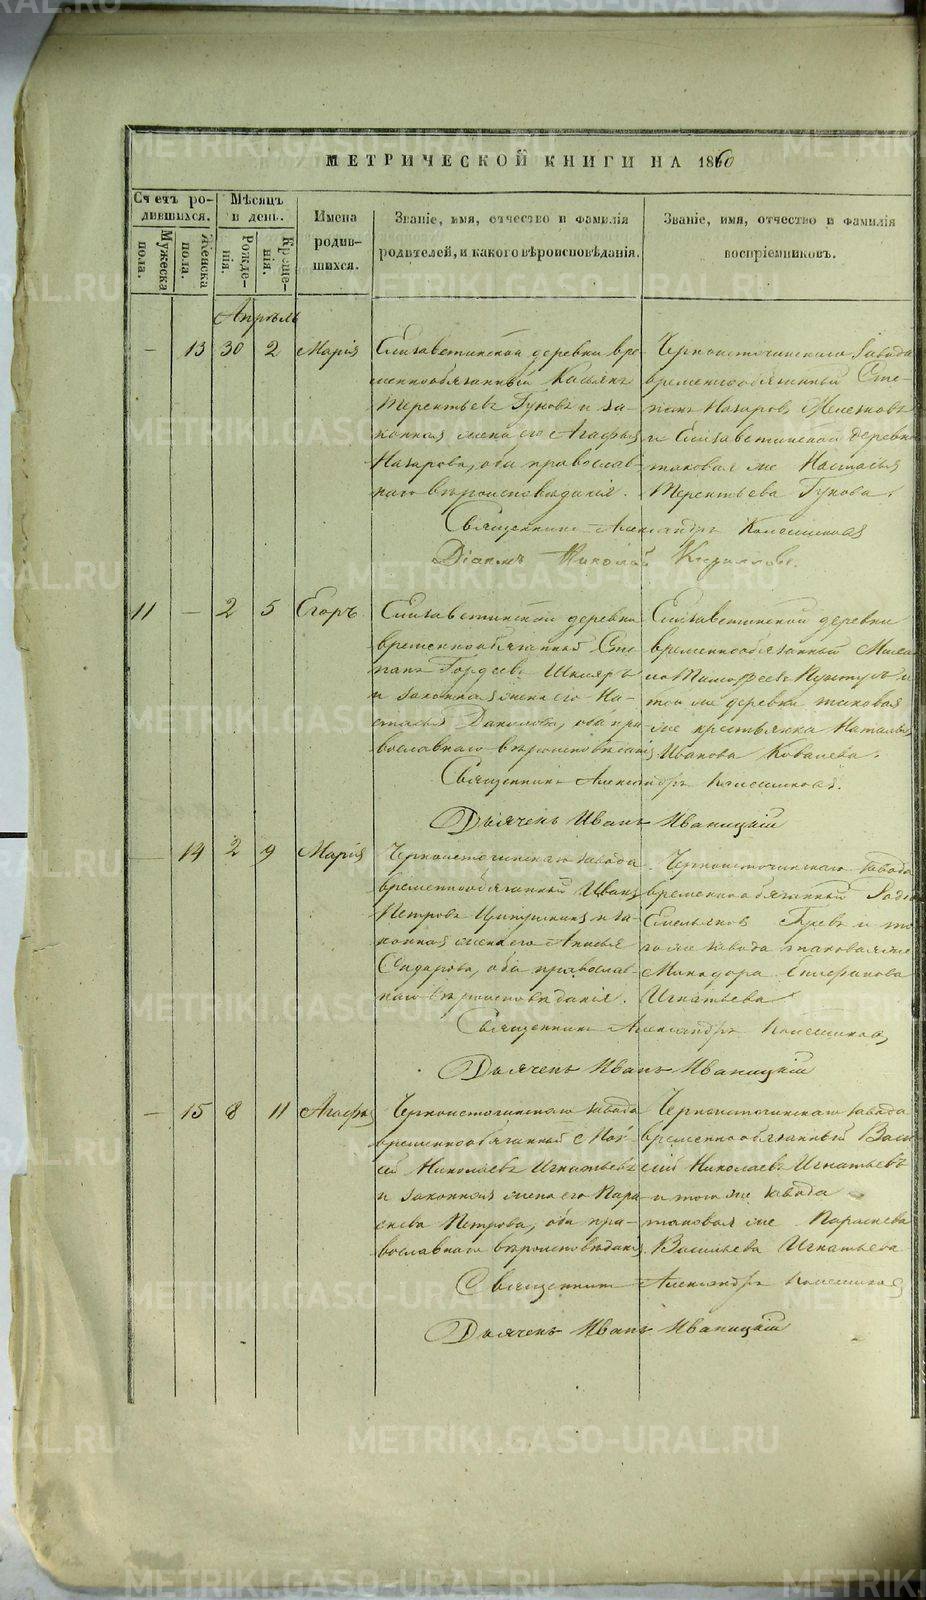 МЕТРИЧЕСКОЙ КНИГИ НА 1860
Счетъ ро-
дившихся.
Мужеска
пола.
Женска
пола.
Мѣсяцъ
и день.
Рожде-
нія.
Креще-
нія.
Имена
родив-
шихся.
Званіе, имя, отчество и фамилія
родителей, и какого вѣроисповѣданія.
Званіе, имя, отчество и фамилія
воспріемниковъ.
Апрѣль
— 13 30 2 Марія
Елизаветинской деревни вре-
меннообязанный Касьянъ
Терентьевъ Гуковъ и за-
конная жена его Агафья
Назарова, оба православ-
наго вѣроисповѣданія.
Черноисточинскаго завода
временнообязанный Сте-
панъ Назаровъ
и Елизаветинской деревни
таковая же Настасья
Терентьева Гукова.
Священникъ Александръ Колесниковъ
Діаконъ Николай
11 — 2 5 Егоръ
Елизаветинской деревни
временнообязанный Сте-
панъ Гордеевъ Шкляръ
и законная жена его На-
стасья Данилова, оба пра-
вославнаго вѣроисповѣданія
Елизаветинской деревни
временнообязанный
Тимофеевъ и
той же деревни таковая
же крестьянка Наталья
Иванова Ковалева.
Священникъ Александръ Колесниковъ.
Дьячекъ Иванъ Иваницкій
— 14 2 9 Марія
Черноисточинскаго завода
временнообязанный Иванъ
Петровъ и за-
конная жена его Анисья
Сидорова, оба православ-
наго вѣроисповѣданія.
Черноисточинскаго завода
временнообязанный
Емельяновъ и то-
го же завода таковая же
Минодора
Игнатьева
Священникъ Александръ Колесниковъ
Дьячекъ Иванъ Иваницкій
— 15 8 11 Агафья
Черноисточинскаго завода
временнообязанный Мои-
сей Николаевъ Игнатьевъ
и законная жена его Пара-
скева Петрова, оба пра-
вославнаго вѣроисповѣданія.
Черноисточинскаго завода
временнообязанный Васи-
лій Николаевъ Игнатьевъ
и того же завода
таковая же Параскева
Васильева Игнатьева
Священникъ Александръ Колесниковъ
Дьячекъ Иванъ Иваницкій
METRIKI.GASO-URAL.RU